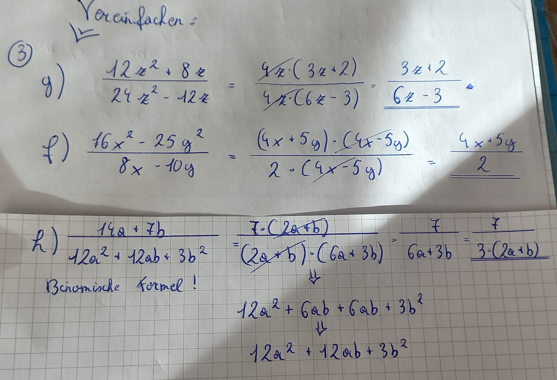 Vereinfachen:
③
g) (12z² + 8z)/(24z² - 12z) = (4z·(3z+2))/(4z·(6z-3)) = (3z+2)/(6z-3).
f) (16x² - 25y²)/(8x - 10y) = ((4x+5y)·(4x-5y))/(2·(4x-5y)) = (4x+5y)/2
h) (14a + 7b)/(12a² + 12ab + 3b²) = (7·(2a+b))/((2a+b)·(6a+3b)) = 7/(6a+3b) = 7/(3·(2a+b))
Binomische Formel!
⇓
12a² + 6ab + 6ab + 3b²
⇓
12a² + 12ab + 3b²